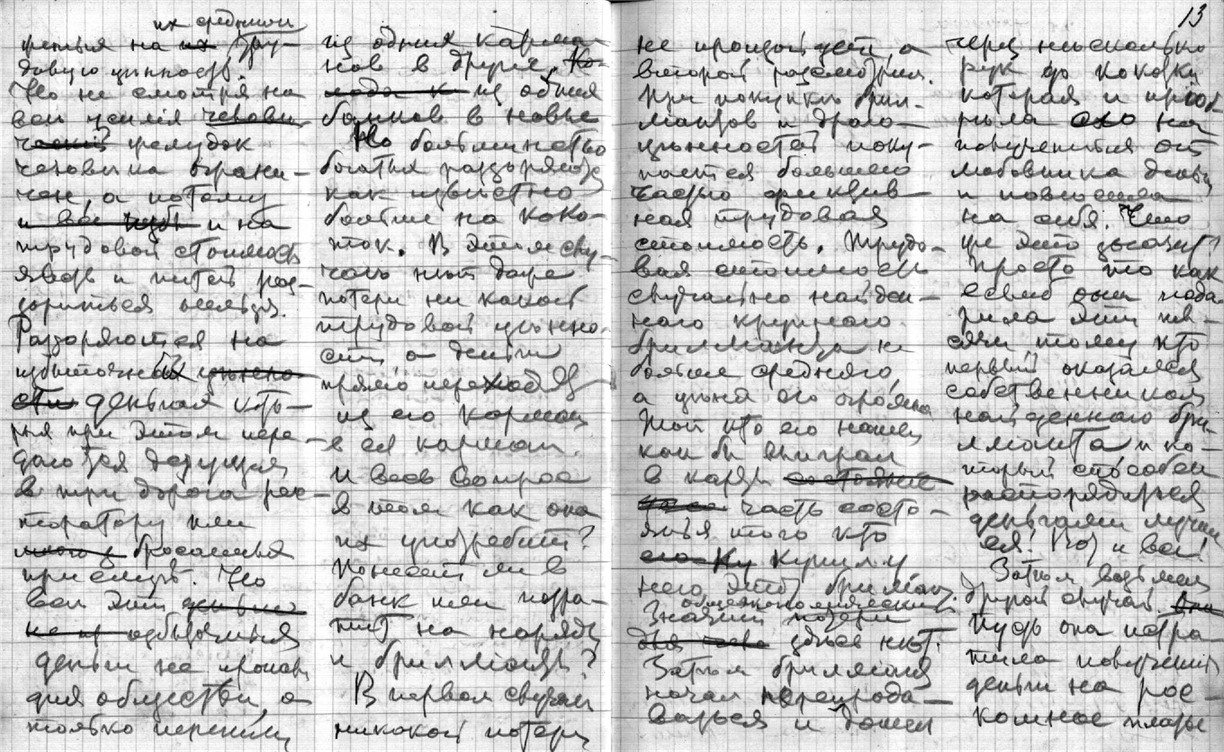 их средний
гретья на их тру-
довую ценность.
Но не смотря на
все усилия
желудок
человека ограни-
чен, а потому
и на
трудовой стоимость
яствъ и питей раз-
дориться нельзя.
Разоряются на
избыточных
деньгах кто-
рыя при этом пере-
даются
в три дорога рес-
торатору или
бросаемыя
при
все эти
избыточныя
деньги не пропали
для общества, а
только перешли
из одних карма-
нов в другие,
из одних
банков в новые
Но большинство
богатых разоряется
как известно
больше на коко-
ток. В этом слу-
чае нет даже
потери ни какой
трудовой ценно-
сти а деньги
прямо переходят
из его карман
в ея карман.
И весь вопрос
в том как она
их употребит?
Понесет ли в
банк или потра-
тит на наряды
и бриллианты?
В первом случае
никакой потери
13
не произойдет, а
второй рассмотрим.
При покупке брил-
лиантов и драго-
ценностей поку-
пается большею
частью фиктив-
ная трудовая
стоимость. Трудо-
вая стоимость
случайно найден-
ного крупного
бриллианта не
больше среднего
а цена его огромна
Той кто его нашел
как бы выиграл
в карты
часть состо-
яния того кто
купил у
него этот бриллиант.
общеэкономической
Значит потери
здесь нет.
Затем бриллиант
начал перепрода-
ваться и дошел
через несколько
рук до кокотки
которая и приоб
рела его на
полученныя от
любовника деньги
и повесила
на себя. Что
же это значит?
Просто то как
если бы она пода-
рила эти ты-
сячи тому кто
первый оказался
собственником
найденнаго бри-
ллианта и ко-
торый способен
распорядиться
деньгами лучше
ея! Вот и все!
Затем возьмем
другой случай.
Пусть она потра-
тила полученныя
деньги на рос-
кошное платье